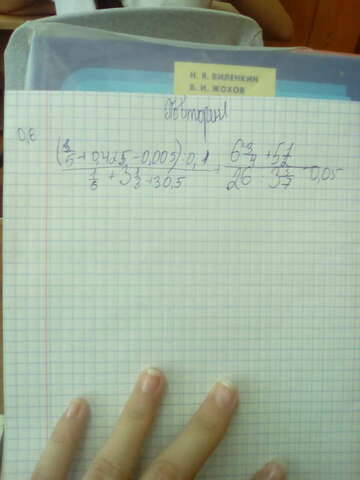 Н. Я. ВИЛЕНКИН
В. И. ЖОХОВ
0,8
(3/5 + 0,425 - 0,005) : 0,1 / 1/6 + 3 1/3 + 30,5 + 6 3/4 + 5 1/2 / 26 : 3 5/7 - 0,05